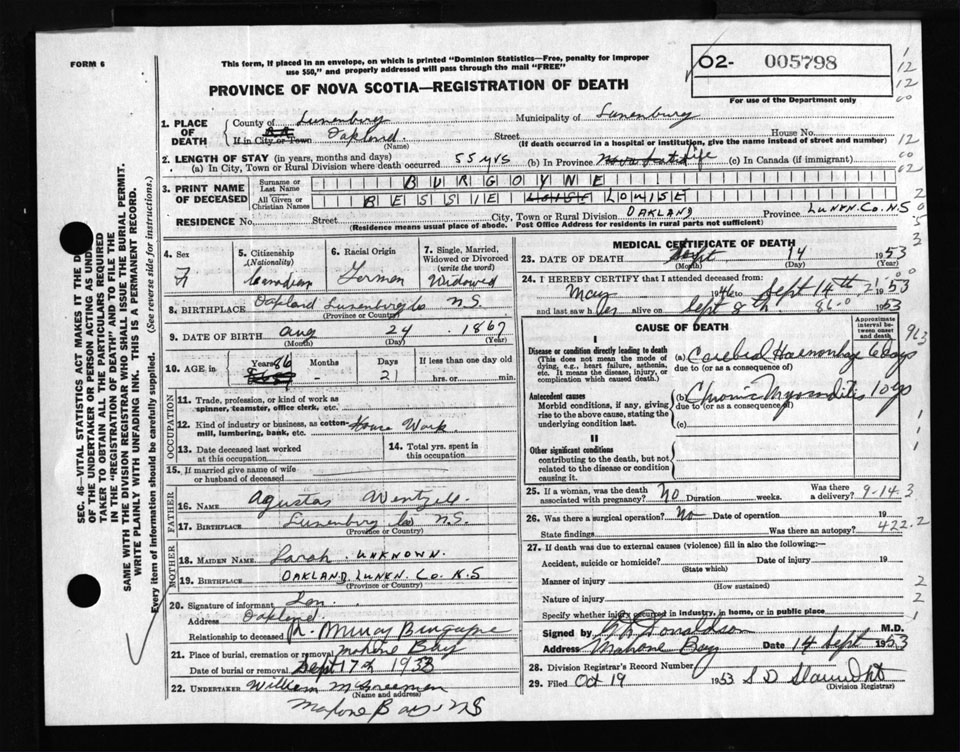 FORM 6
This form, if placed in an envelope, on which is printed "Dominion Statistics—Free, penalty for improper
use $50," and properly addressed will pass through the mail "FREE"
02- 005798
PROVINCE OF NOVA SCOTIA—REGISTRATION OF DEATH
For use of the Department only
1. PLACE OF DEATH
County of Lunenburg Municipality of Lunenburg
If in City or Town Oakland Street House No.
(Name) (If death occurred in a hospital or institution, give the name instead of street and number)
2. LENGTH OF STAY (in years, months and days)
(a) In City, Town or Rural Division where death occurred 55 yrs (b) In Province Life (c) In Canada (if immigrant)
3. PRINT NAME OF DECEASED
Surname or Last Name BURGOYNE
All Given or Christian Names BESSIE LOUISE
RESIDENCE No. Street City, Town or Rural Division OAKLAND Province LUNEN. Co. N.S
(Residence means usual place of abode. Post Office Address for residents in rural parts not sufficient)
4. Sex F
5. Citizenship (Nationality) Canadian
6. Racial Origin German
7. Single, Married, Widowed or Divorced (write the word) Widowed
8. BIRTHPLACE Oakland Lunenburg Co N.S.
(Province or Country)
9. DATE OF BIRTH Aug 24 1867
(Month) (Day) (Year)
10. AGE in Years 86 Months - Days 21 If less than one day old hrs. or min.
OCCUPATION
11. Trade, profession, or kind of work as spinner, teamster, office clerk, etc.
12. Kind of industry or business, as cotton-mill, lumbering, bank, etc. House Work
13. Date deceased last worked at this occupation
14. Total yrs. spent in this occupation
15. If married give name of wife or husband of deceased
FATHER
16. NAME Agustas Wentzell
17. BIRTHPLACE Lunenburg Co N.S.
(Province or Country)
MOTHER
18. MAIDEN NAME Sarah UNKNOWN.
19. BIRTHPLACE OAKLAND, LUNEN. Co. N.S
(Province or Country)
20. Signature of informant Son.
Address Oakland
Relationship to deceased R. Murray Burgoyne
21. Place of burial, cremation or removal Mahone Bay
Date of burial or removal Sept 17th 1953
22. UNDERTAKER William McGreeman
(Name and address)
Mahone Bay N.S
MEDICAL CERTIFICATE OF DEATH
23. DATE OF DEATH Sept 14 1953
(Month) (Day) (Year)
24. I HEREBY CERTIFY that I attended deceased from
May 1946 to Sept 14th, 1953
and last saw her alive on Sept 8th 1953
CAUSE OF DEATH
Approximate interval between onset and death
I
Disease or condition directly leading to death
(This does not mean the mode of dying, e.g., heart failure, asthenia, etc. It means the disease, injury, or complication which caused death.)
(a) Cerebral Haemorrhage 6 days
due to (or as a consequence of)
Antecedent causes
Morbid conditions, if any, giving rise to the above cause, stating the underlying condition last.
(b) Chronic Myocarditis 10 yrs
due to (or as a consequence of)
(c)
II
Other significant conditions
contributing to the death, but not related to the disease or condition causing it.
25. If a woman, was the death associated with pregnancy? No Duration weeks. Was there a delivery?
9-14-3
26. Was there a surgical operation? No Date of operation 19
State findings Was there an autopsy?
422.2
27. If death was due to external causes (violence) fill in also the following:—
Accident, suicide or homicide? Date of injury 19
(State which)
Manner of injury
(How sustained)
Nature of injury
Specify whether injury occurred in industry, in home, or in public place
Signed by Donaldson M.D.
Address Mahone Bay Date 14 Sept 1953
28. Division Registrar's Record Number
29. Filed Oct 19 1953
(Division Registrar)
SEC. 46—VITAL STATISTICS ACT MAKES IT THE
OF THE UNDERTAKER OR PERSON ACTING AS UNDER
TAKER TO OBTAIN ALL THE PARTICULARS REQUIRED
IN THE "REGISTRATION OF DEATH" AND TO FILE THE
SAME WITH THE DIVISION REGISTRAR WHO SHALL ISSUE THE BURIAL PERMIT.
WRITE PLAINLY WITH UNFADING INK. THIS IS A PERMANENT RECORD.
Every item of information should be carefully supplied. (See reverse side for instructions.)